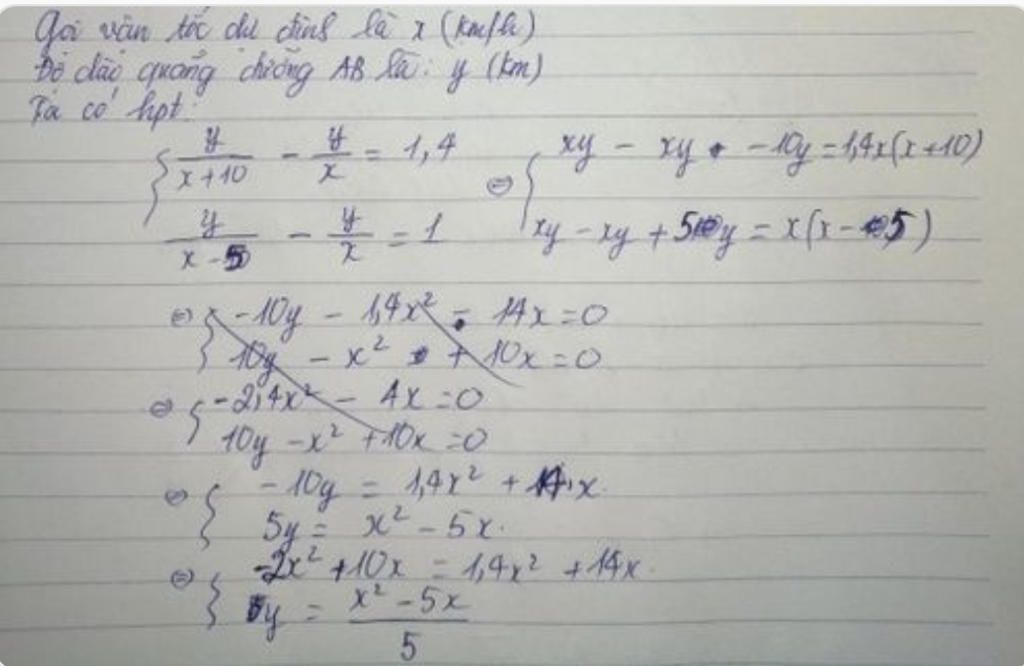 Gọi vận tốc dự định là x (km/h)
Độ dài quãng đường AB là: y (km)
Ta có hpt:
{ y/(x+10) - y/x = 1,4 ⇔ { xy - xy - 10y = 1,4x(x+10)
y/(x-5) - y/x = 1 xy - xy + 5y = x(x-5)
⇔ { -10y - 1,4x² - 14x = 0
10y - x² + 10x = 0
⇔ { -2,4x² - 4x = 0
10y - x² + 10x = 0
⇔ { -10y = 1,4x² + 14x.
5y = x² - 5x.
⇔ { -2x² + 10x = 1,4x² + 14x.
y = (x² - 5x)/5